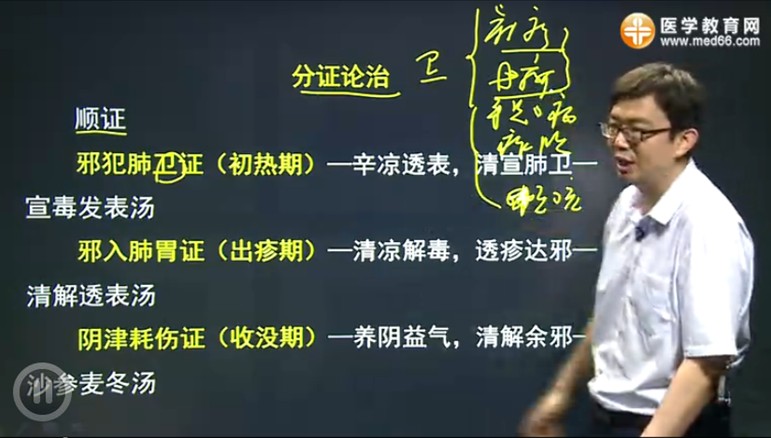 医学教育网
www.med66.com
分证论治 卫
顺证
邪犯肺卫证（初热期）—辛凉透表，清宣肺卫—
宣毒发表汤
邪入肺胃证（出疹期）—清凉解毒，透疹达邪—
清解透表汤
阴津耗伤证（收没期）—养阴益气，清解余邪—
沙参麦冬汤